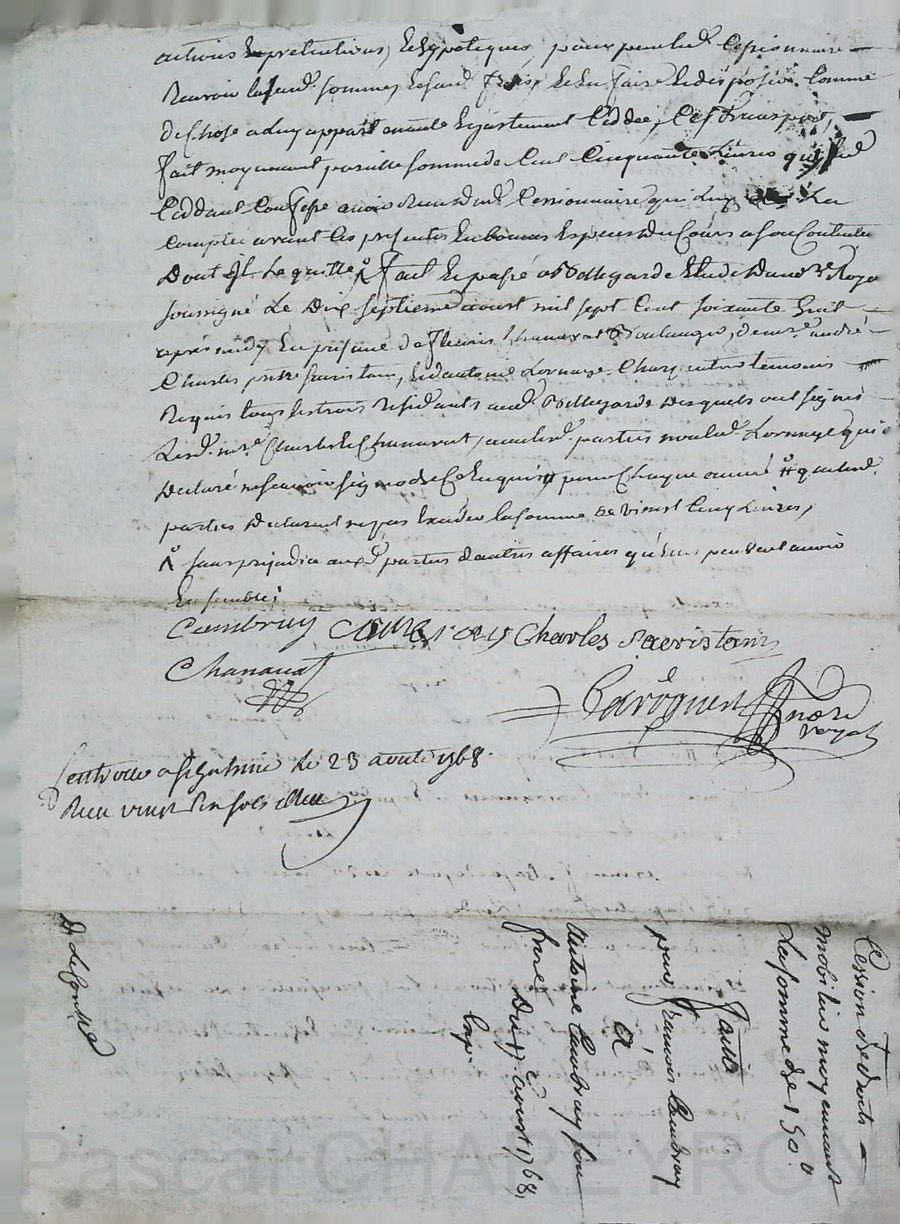 actions pretentions, & hypoteques, pour par led. Cessionnaire
Recevoir lesd. sommes, & en faire & disposer Comme
de Chose a luy appartenante
fait moyennant pareille somme de Cent Cinquante Livres que led.
Ceddant Confesse avoir Receu dud. Cessionnaire qui Luy a La
Comptée avant Ces presentes En bonnes Especes du Cours a son Contentem.
Dont Il Le quitte fait & passé a Bellegarde Etude du no.re Royal
soussigné Le Dix septieme aoust mil sept Cent soixante huit
après midy En presence de fleuris Chanavat Boulanger, de m.re andré
Charles pretre sacristain, & d'antoine Lornage Charpentier temoins
Requis tous les trois Residants aud. Bellegarde desquels ont signés
Led. m.re Charles & Chanavat, avec lesd. parties non led. Lornage qui a
Declaré ne scavoir signer de Ce Enquis pour Chaque année que lesd.
parties Declarent ne pas Exceder la somme de vingt Cinq Livres,
sans prejudice auxd. parties d'autres affaires qu'Elles peuvent avoir
Ensembles
Cambray Cambray Charles Sacristain
Chanavat
nore
royal
le 23 aoust 1768
Receu vingt sols
Cession de droits
mobiliers moyennant
La somme de 150 ll
faitte
par françois Cambray
a
Antoine Cambray son
frere Du 17.e aoust 1768,
Exp.
Pascal CHAREYRON